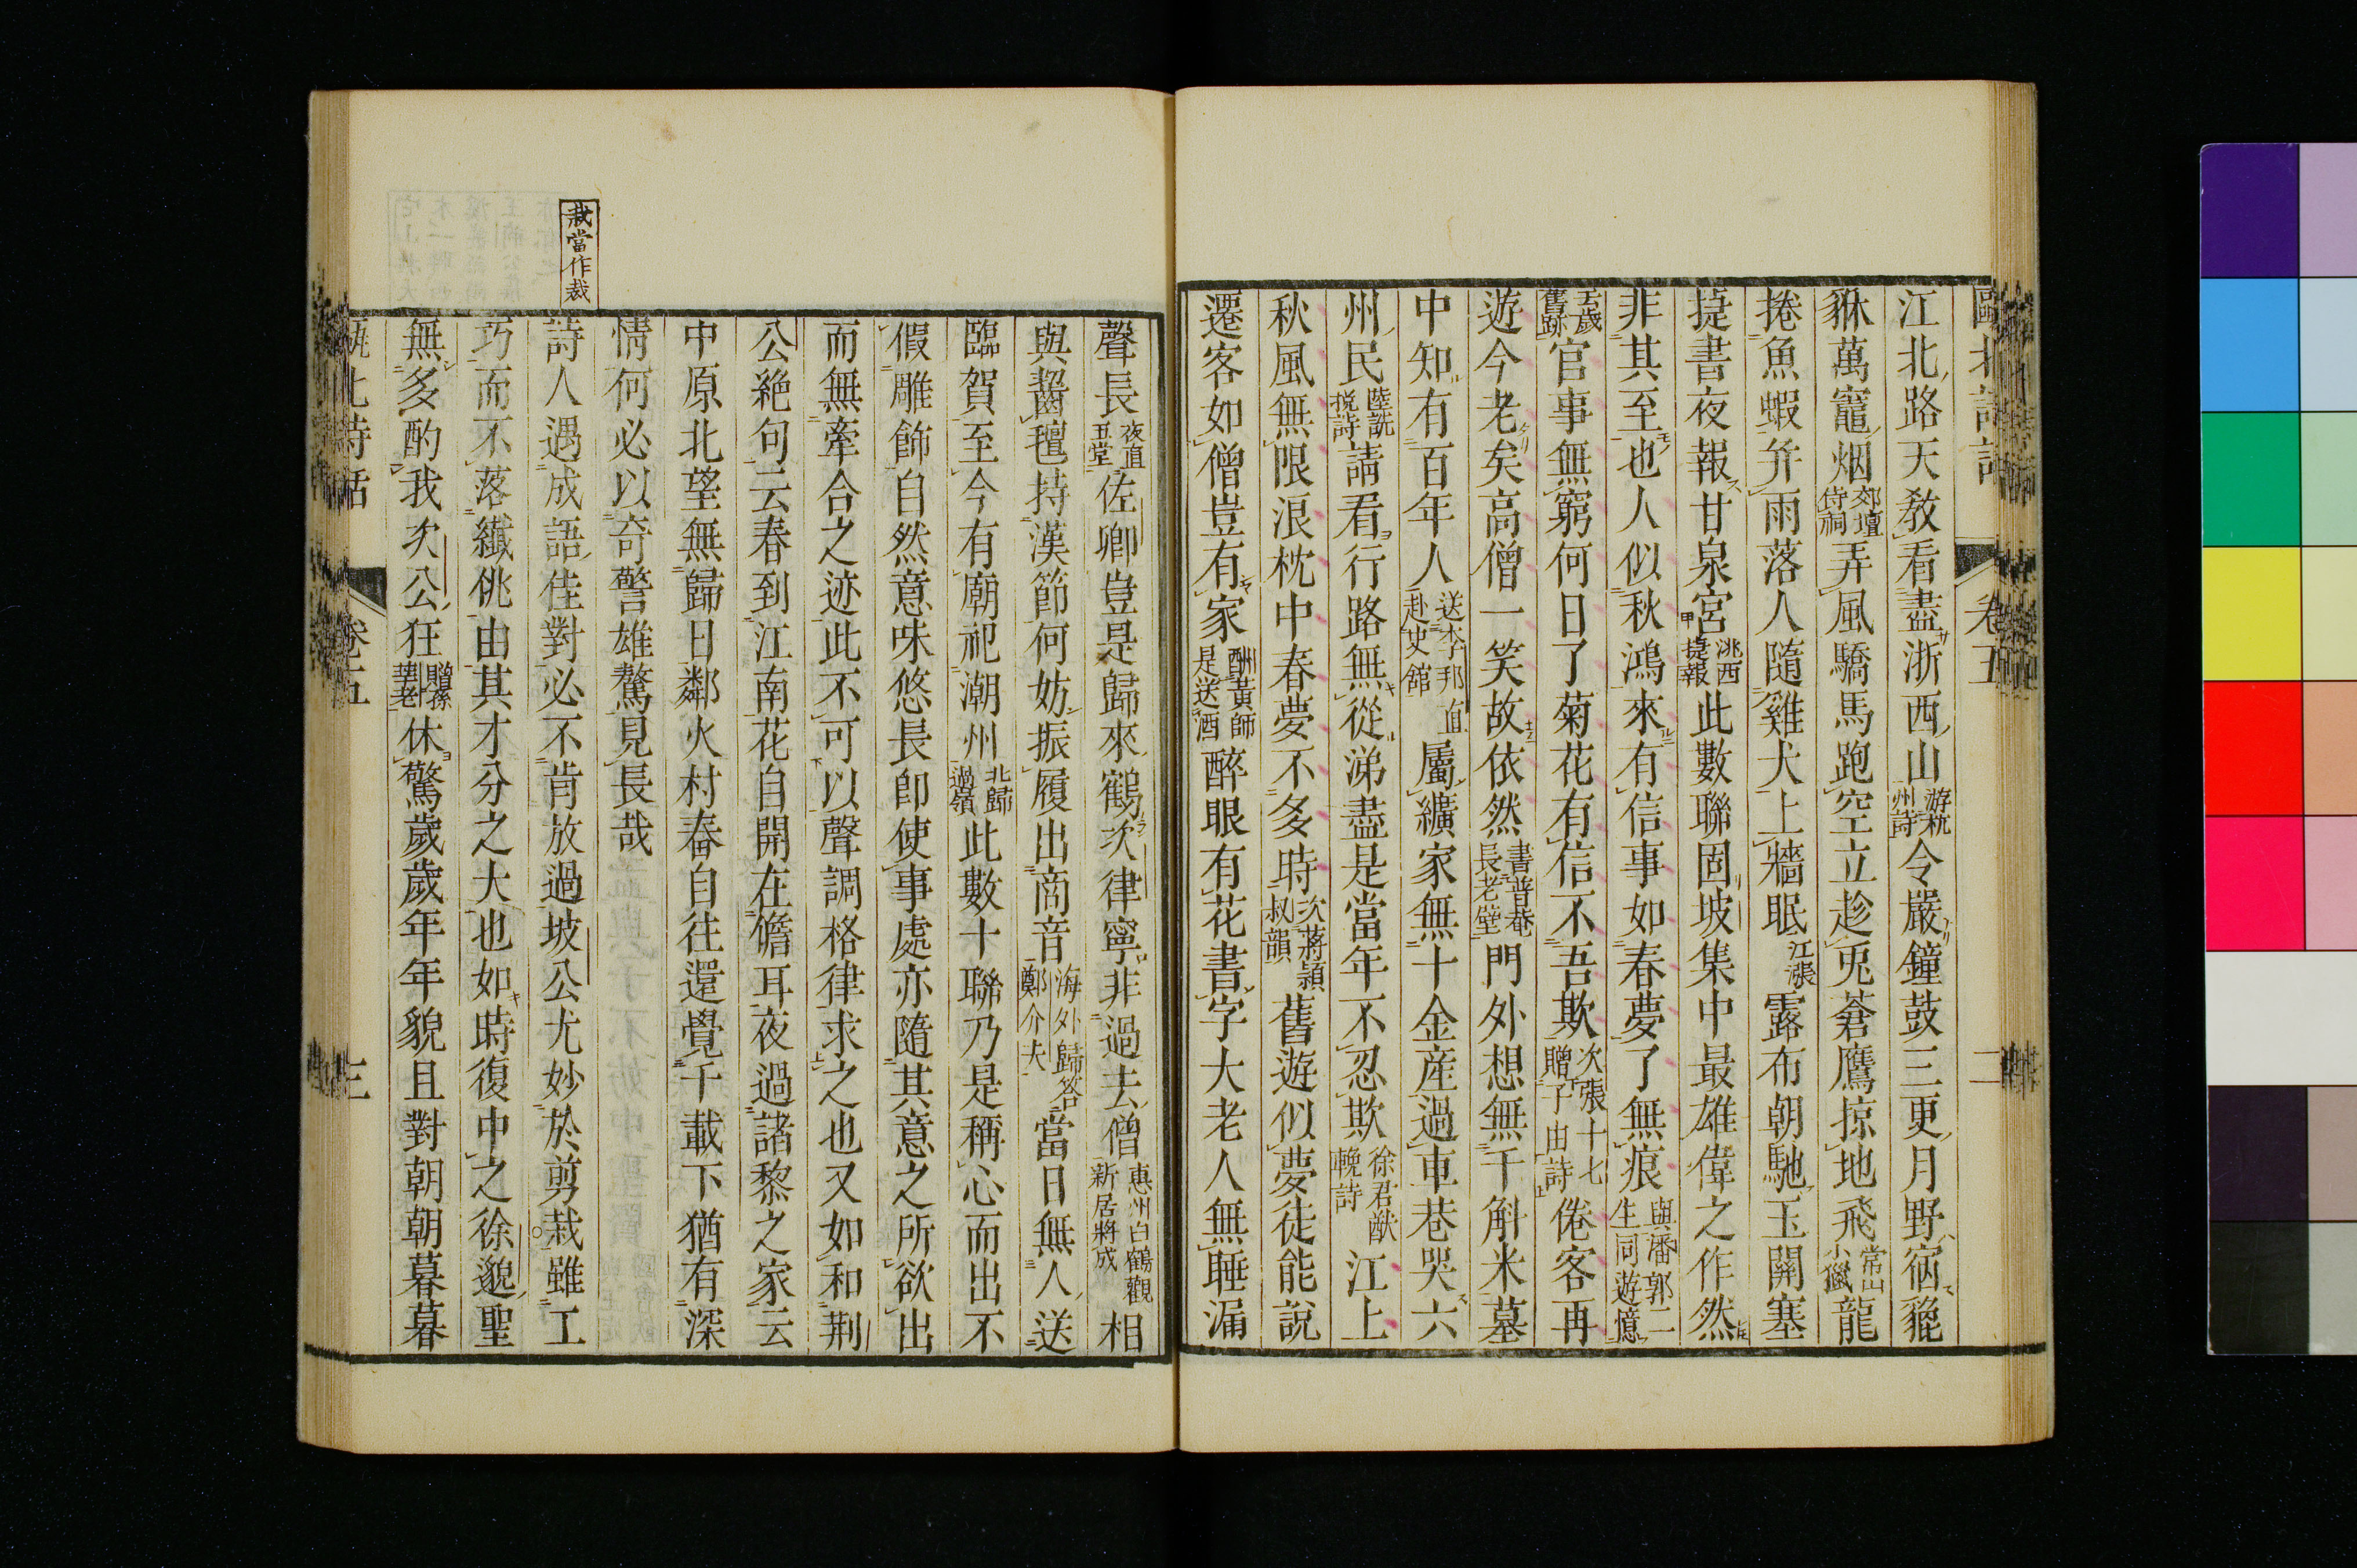 甌北詩話 卷五 二
江北路天敎看盡浙西山游杭州詩令嚴鐘鼓三更月野宿貔
貅萬竈烟郊壇侍祠弄風驕馬跑空立趁兎蒼鷹掠地飛常山小獵龍
捲魚蝦并雨落人隨雞犬上牆眠江漲露布朝馳玉關塞
捷書夜報甘泉宮洮西捷報此數聯固坡集中最雄偉之作然
非其至也人似秋鴻來有信事如春夢了無痕與潘郭二生同遊憶
去歲舊跡官事無窮何日了菊花有信不吾欺次張十七贈子由詩倦客再
遊今老矣高僧一笑故依然書普菴長老壁門外想無千斛米墓
中知有百年人送李邦直赴史館屬纊家無十金産過車巷哭六
州民陸詵挽詩請看行路無從涕盡是當年不忍欺徐君猷輓詩江上
秋風無限浪枕中春夢不多時次蔣頴叔韻舊遊似夢徒能說
遷客如僧豈有家酬黃師是送酒醉眼有花書字大老人無睡漏
聲長夜直玉堂佐卿豈是歸來鶴次律寧非過去僧惠州白鶴觀新居將成相
與齧氊持漢節何妨振履出商音海外歸答鄭介夫當日無人送
臨賀至今有廟祀潮州北歸過嶺此數十聯乃是稱心而出不
假雕飾自然意味悠長卽使事處亦隨其意之所欲出
而無牽合之迹此不可以聲調格律求之也又如和荆
公絶句云春到江南花自開在儋耳夜過諸黎之家云
中原北望無歸日鄰火村舂自往還覺千載下猶有深
情何必以奇警雄驁見長哉
詩人遇成語佳對必不肯放過坡公尤妙於剪栽雖工
巧而不落纖佻由其才分之大也如時復中之徐邈聖
無多酌我次公狂贈孫莘老休驚歲歲年年貌且對朝朝暮暮
甌北詩話 卷五 三
栽當作裁